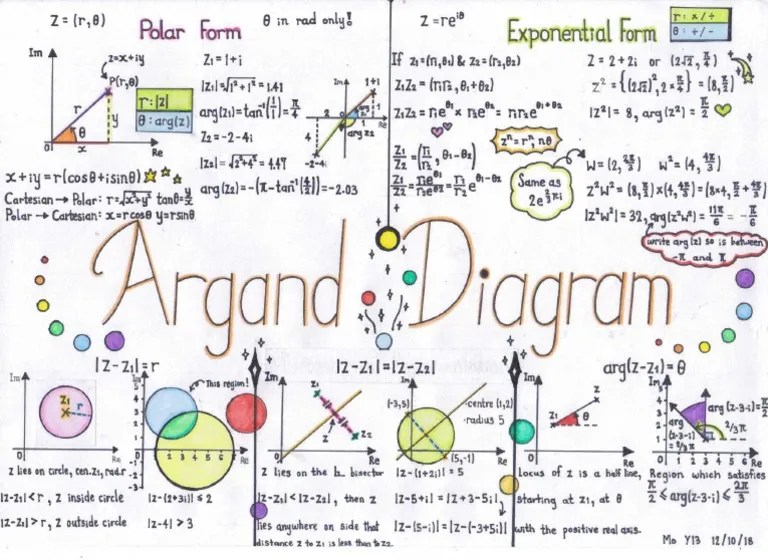 Z = (r, θ)
Polar Form
θ in rad only!
Im
z=x+iy
P(r,θ)
r
y
θ
0
x
Re
r: |z|
θ: arg(z)
x+iy = r(cosθ+isinθ)
Cartesian → Polar: r=√x²+y² tanθ=y/x
Polar → Cartesian: x=rcosθ y=rsinθ
Z₁ = 1+i
|Z₁| = √1²+1² = 1.41
arg(Z₁) = tan⁻¹(1/1) = π/4
Z₂ = -2-4i
|Z₂| = √2²+4² = 4.47
arg(Z₂) = -(π-tan⁻¹(4/2)) = -2.03
Im
1+i
4
Re
arg Z₂
-2-4i
Z = re^iθ
Exponential Form
r: x/÷
θ: +/-
If Z₁=(r₁,θ₁) & Z₂=(r₂,θ₂)
Z₁Z₂ = (r₁r₂, θ₁+θ₂)
Z₁Z₂ = r₁e^θ₁ × r₂e^θ₂ = r₁r₂e^θ₁+θ₂
Z₁/Z₂ = (r₁/r₂, θ₁-θ₂)
Z₁/Z₂ = r₁e^θ₁/r₂e^θ₂ = r₁/r₂ e^θ₁-θ₂
zⁿ = rⁿ, nθ
Same as
2e^⅔πi
Z = 2+2i or (2√2, π/4)
Z² = {(2√2)², 2×π/4} = (8, π/2)
|Z²| = 8, arg(Z²) = π/2
W = (2, 2π/3) W² = (4, 4π/3)
Z²W² = (8, π/2) × (4, 4π/3) = (8×4, π/2+4π/3)
|Z²W²| = 32, arg(Z²W²) = 11π/6 = -π/6
write arg(z) so is between
-π and π
Argand Diagram
|Z-Z₁| = r
Im
Z₁
r
Re
Z lies on circle, cen. Z₁, rad. r
|Z-Z₁| < r, Z inside circle
|Z-Z₁| > r, Z outside circle
Im
This region!
5
4
3
2
1
0
1 2 3 4 5 6 7
Re
-1
-2
-3
|Z-(2+3i)| ≤ 2
|Z-4| > 3
|Z-Z₁| = |Z-Z₂|
Im
Z₁
Z
Z₂
Re
Z lies on the ⊥ bisector
|Z-Z₁| < |Z-Z₂|, then Z
lies anywhere on side that
distance Z to Z₁ is less than to Z₂
Im
(-3,5)
-centre (1,2)
-radius 5
(5,-1)
Re
|Z-(1+2i)| = 5
|Z-5+i| = |Z+3-5i|
|Z-(5-i)| = |Z-(-3+5i)|
arg(Z-Z₁) = θ
Im
Z
Z₁
θ
Re
locus of Z is a half line,
starting at Z₁, at θ
with the positive real axis.
Im
5
4
3
2
1
0
1 2 3
Re
arg (z-3-i) = π/2
arg
(z-3-i)
= 2/3π
2/3π
Region which satisfies
π/2 ≤ arg(Z-3-i) ≤ 2π/3
Mo Y13 12/10/18